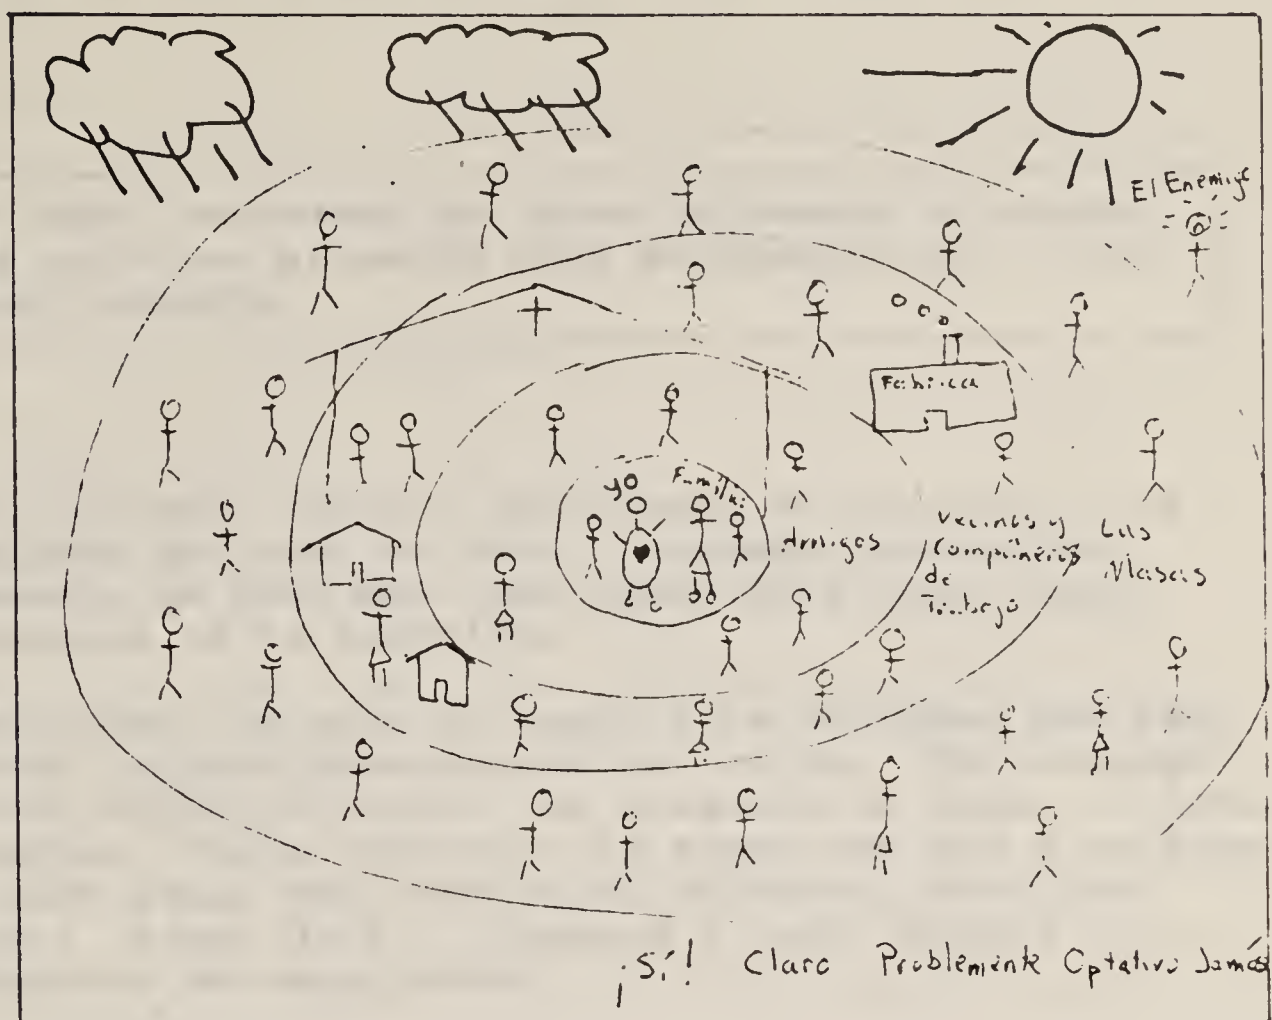 El Enemigo
Fabricca
yo
Familia
Amigos
Vecinos y
Compañeros
de
Trabajo
Las
Masas
¡Sí! Claro Problemente Optativo Jamás